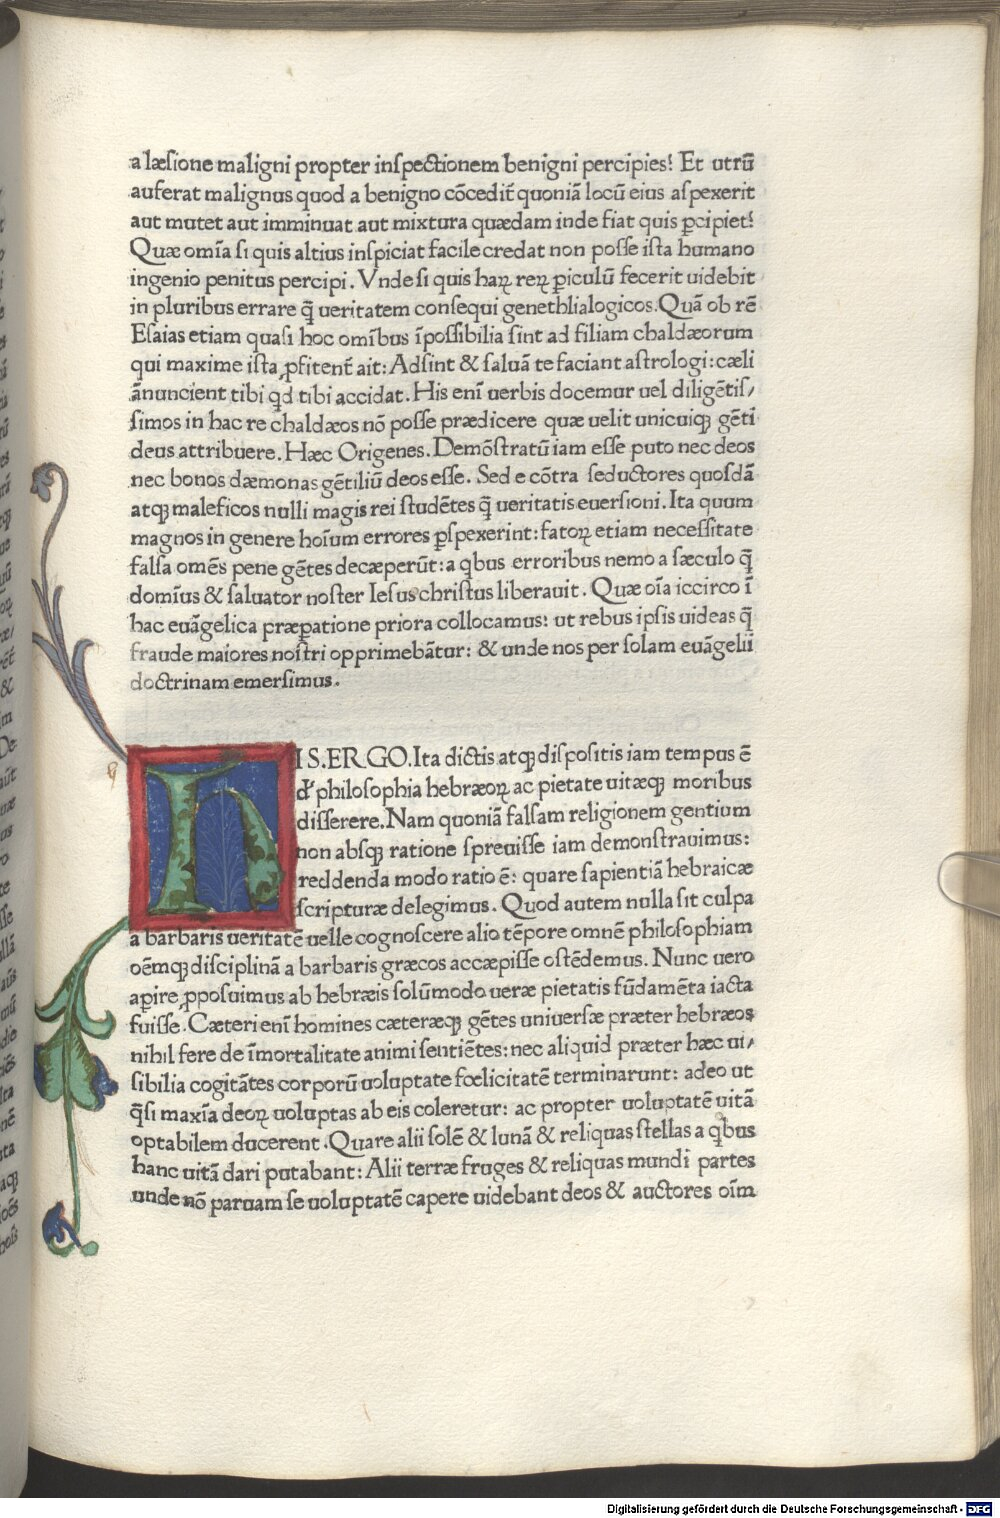 a læsione maligni propter inspectionem benigni percipies? Et utrū
auferat malignus quod a benigno cōcedit̄ quoniā locū eius aspexerit
aut mutet aut imminuat aut mixtura quædam inde fiat quis ꝑcipiet?
Quæ omīa si quis altius inspiciat facile credat non posse ista humano
ingenio penitus percipi. Vnde si quis haꝝ reꝝ ꝑiculū fecerit uidebit
in pluribus errare q̄ ueritatem consequi genethlialogicos. Quā ob rē
Esaias etiam quasi hoc omībus īpossibilia sint ad filiam chaldæorum
qui maxime ista ꝓfitent̄ ait: Adsint & saluā te faciant astrologi: cæli
ānuncient tibi qd tibi accidat. His enī uerbis docemur uel diligētis/
simos in hac re chaldæos nō posse prædicere quæ uelit unicuiqꝫ gēti
deus attribuere. Hæc Origenes. Demōstratū iam esse puto nec deos
nec bonos dæmonas gētiliū deos esse. Sed e cōtra seductores quosdā
atqꝫ maleficos nulli magis rei studētes q̄ ueritatis euersioni. Ita quum
magnos in genere hoīum errores ꝑspexerint: fatoꝝ etiam necessitate
falsa omēs pene gētes decæperūt: a qbus erroribus nemo a sæculo q̄
domīus & saluator noster Iesus christus liberauit. Quæ oīa iccirco ī
hac euāgelica præꝑatione priora collocamus: ut rebus ipsis uideas q̄
fraude maiores nostri opprimebātur: & unde nos per solam euāgelii
doctrinam emersimus.
HIS. ERGO. Ita dictis atqꝫ dispositis iam tempus ē
d' philosophia hebræoꝝ ac pietate uitæqꝫ moribus
disserere. Nam quoniā falsam religionem gentium
non absqꝫ ratione spreuisse iam demonstrauimus:
reddenda modo ratio ē: quare sapientiā hebraicæ
scripturæ delegimus. Quod autem nulla sit culpa
a barbaris ueritatē uelle cognoscere alio tēpore omnē philosophiam
oēmqꝫ disciplinā a barbaris græcos accæpisse ostēdemus. Nunc uero
aꝑire ꝓposuimus ab hebræis solūmodo ueræ pietatis fūdamēta iacta
fuisse. Cæteri enī homines cæteræqꝫ gētes uniuersæ præter hebræos
nihil fere de īmortalitate animi sentiētes: nec aliquid præter hæc ui/
sibilia cogitātes corporū uoluptate fœlicitatē terminarunt: adeo ut
q̄si maxīa deoꝝ uoluptas ab eis coleretur: ac propter uoluptatē uitā
optabilem ducerent. Quare alii solē & lunā & reliquas stellas a qbus
hanc uitā dari putabant: Alii terræ fruges & reliquas mundi partes
unde nō paruam se uoluptatē capere uidebant deos & auctores oīm
Digitalisierung gefördert durch die Deutsche Forschungsgemeinschaft - DFG